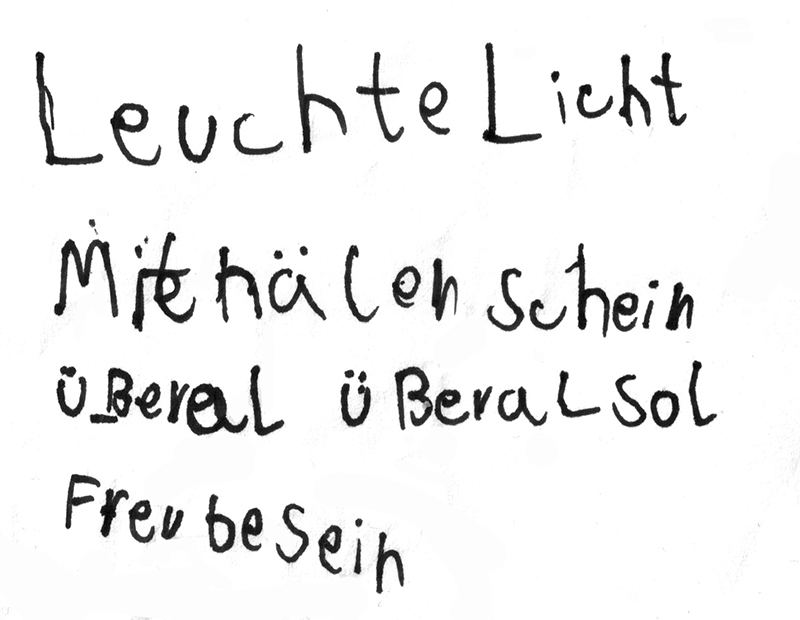 Leuchte Licht
Mit hälen schein
üBeral üBeral sol
Freubesein